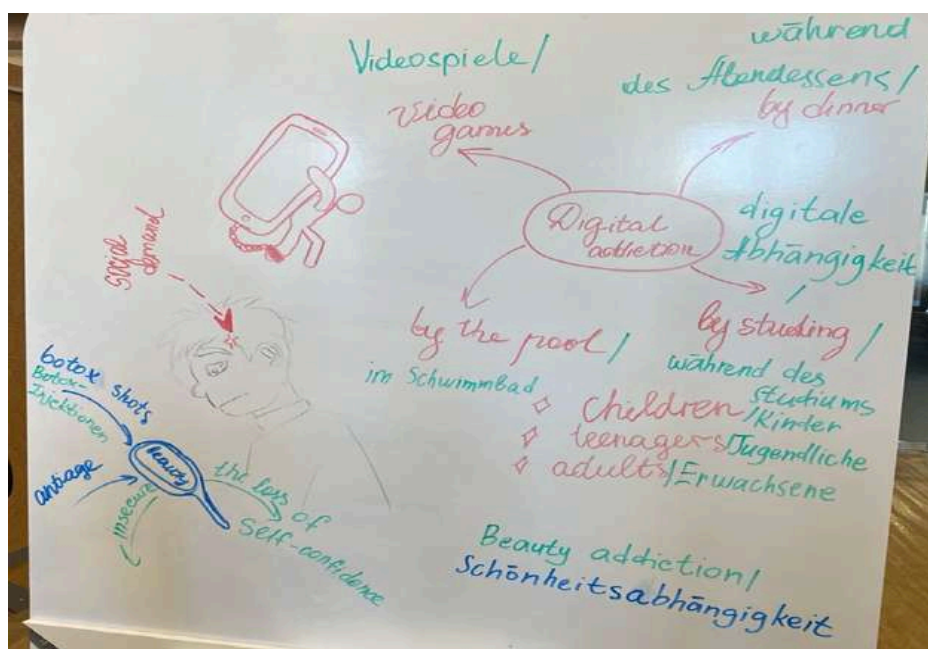 Videospiele/
video
games
während
des Abendessens/
by dinner
Digital
addiction
digitale
Abhängigkeit
/
by the pool/
im Schwimmbad
by studing/
während des
studiums
children/Kinder
teenagers/Jugendliche
adults/Erwachsene
social
demand
botox shots
Botox-
Injektionen
antiage
beauty
insecure
the loss of
self-confidence
Beauty addiction/
Schönheitsabhängigkeit